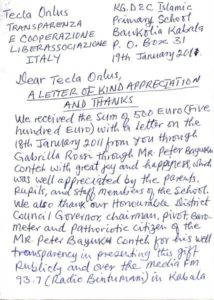 Tecla Onlus
TRANSPARENZA
E COOPERAZIONE
LIBERASSOCIAZIONE
ITALY
KG. DEC Islamic
Primary School
Baukolia Kabala
P.O. Box 31
19th January 2011
Dear Tecla Onlus,
A LETTER OF KIND APPRECIATION
AND THANKS
We received the Sum of 500 Euro (Five
hundred Euro) with a letter on the
18th January 2011 from you through
Gabrilla Rossi through MR Peter Bayuku
Conteh with great joy and happiness, which
was well appreciated by the parents,
pupils, and staff members of the School.
We also thank our Honourable District
Council Governor, chairman, pivot, Baro-
meter and Pathoriotic Citizen of the
MR Peter Bayuku Conteh for his well
transparency in presenting this gift
Publicly and over the media FM
93.7 (Radio Bentumani) in Kabala